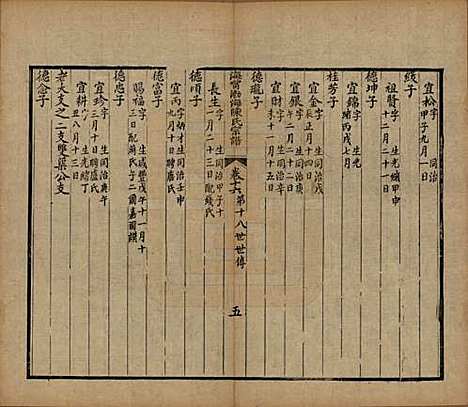 綬子
宜松字生同治
甲子九月一日
德坤子
祖賢字生光緒甲申
十二月二十一日
桂芳子
宜錦字生光
緒丙戌七月
德瓏子
宜金字生同治戊
辰正月十四日
宜銀字生同治庚
午二月二日
宜財字生同治辛
未十一月十五日
海甯渤海陳氏宗譜
卷十六
第十八世世傳
五
長生字生同治甲子十
一月二十三日配錢氏
德順子
宜丙字炳才生同治壬申
九月十日聘盧氏
德富子
賜福字生咸豐戊午十一月十
三日配湯氏子二爾嘉爾祺
德忠子
宜珍字生同治庚午
三月十日聘盧氏
宜耕字生光緒丁
丑八月十三日
老大支之二支雙葉公支
德念子